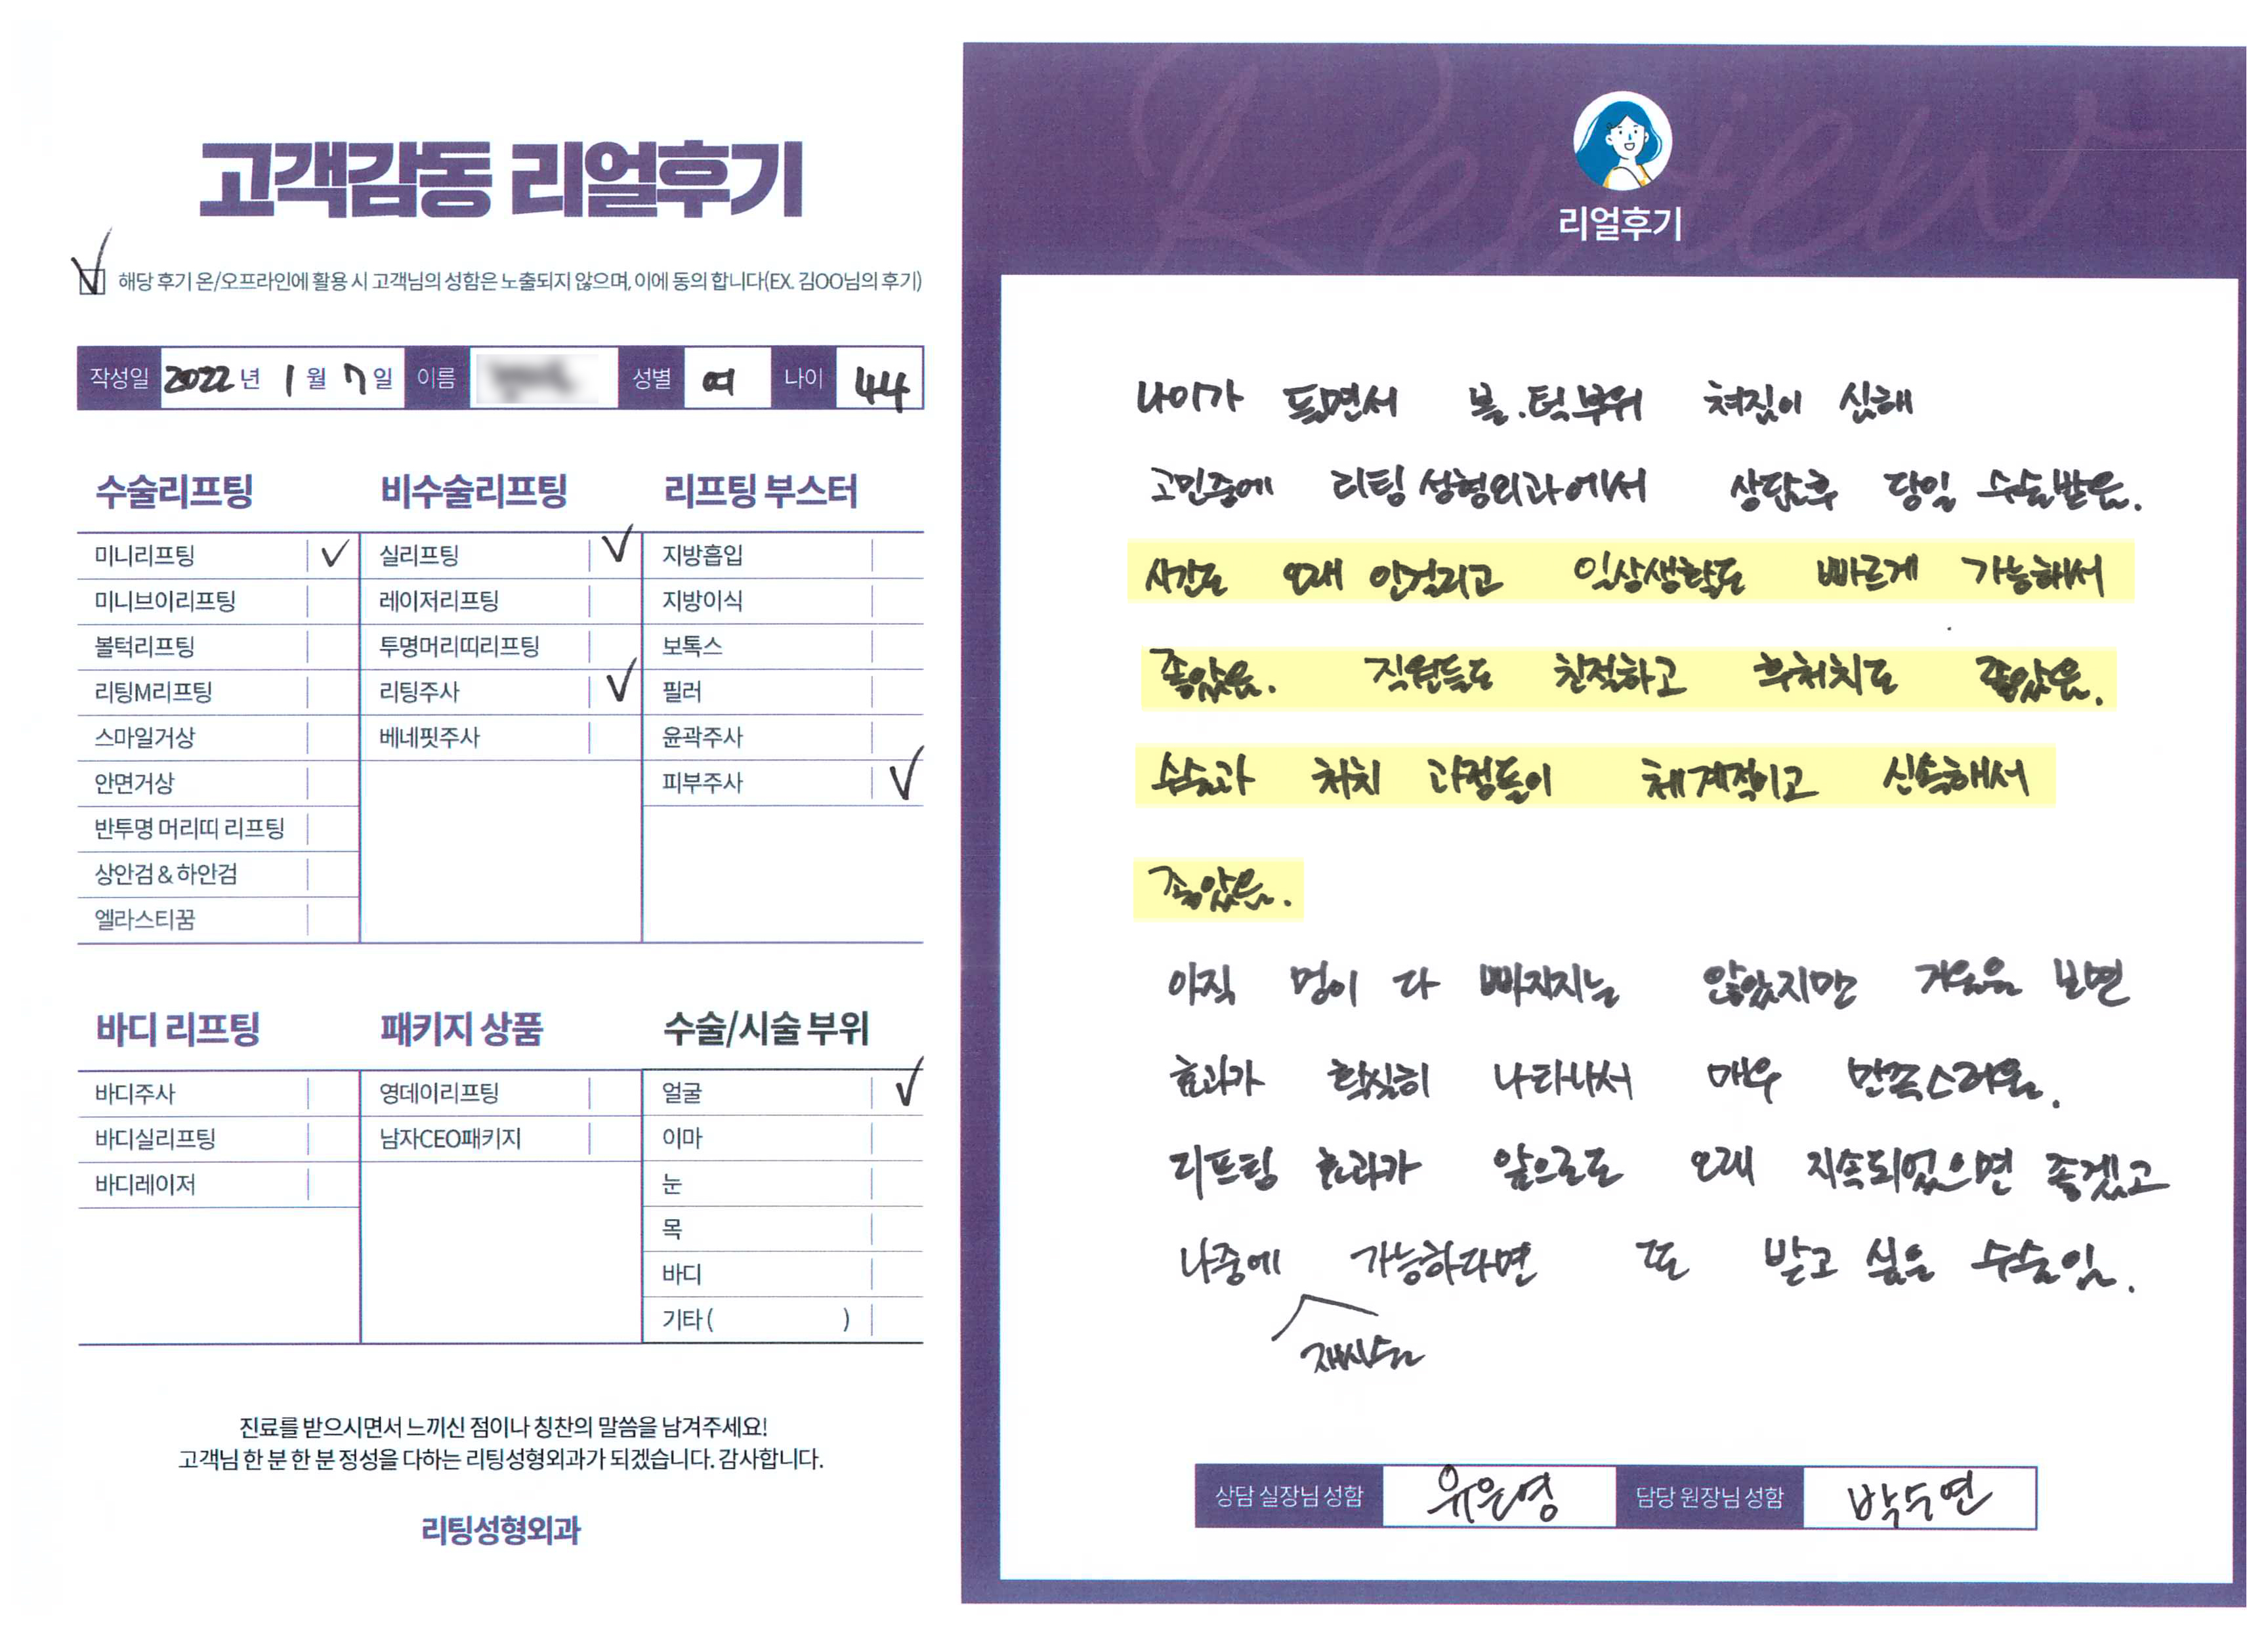 고객감동 리얼후기
해당 후기 온/오프라인에 활용 시 고객님의 성함은 노출되지 않으며, 이에 동의 합니다(EX. 김OO님의 후기)
작성일 2022년 1월 7일 이름 성별 여 나이 44
수술리프팅
미니리프팅
미니브이리프팅
볼턱리프팅
리팅M리프팅
스마일거상
안면거상
반투명 머리띠 리프팅
상안검 & 하안검
엘라스티꿈
비수술리프팅
실리프팅
레이저리프팅
투명머리띠리프팅
리팅주사
베네핏주사
리프팅 부스터
지방흡입
지방이식
보톡스
필러
윤곽주사
피부주사
바디 리프팅
바디주사
바디실리프팅
바디레이저
패키지 상품
영데이리프팅
남자CEO패키지
수술/시술 부위
얼굴
이마
눈
목
바디
기타 ( )
진료를 받으시면서 느끼신 점이나 칭찬의 말씀을 남겨주세요!
고객님 한 분 한 분 정성을 다하는 리팅성형외과가 되겠습니다. 감사합니다.
리팅성형외과
Review
리얼후기
나이가 들면서 볼.턱부위 쳐짐이 심해
고민중에 리팅성형외과에서 상담후 당일 수술받음.
시간도 오래 안걸리고 일상생활도 빠르게 가능해서
좋았음. 직원들도 친절하고 후처치도 좋았음.
수술과 처치 과정들이 체계적이고 신속해서
좋았음.
아직 멍이 다 빠지지는 않았지만 거울을 보면
효과가 확실히 나타나서 매우 만족스러움.
리프팅 효과가 앞으로도 오래 지속되었으면 좋겠고
나중에 가능하다면 또 받고 싶은 수술임.
재시술
상담 실장님 성함 유은영 담당 원장님 성함 박수연